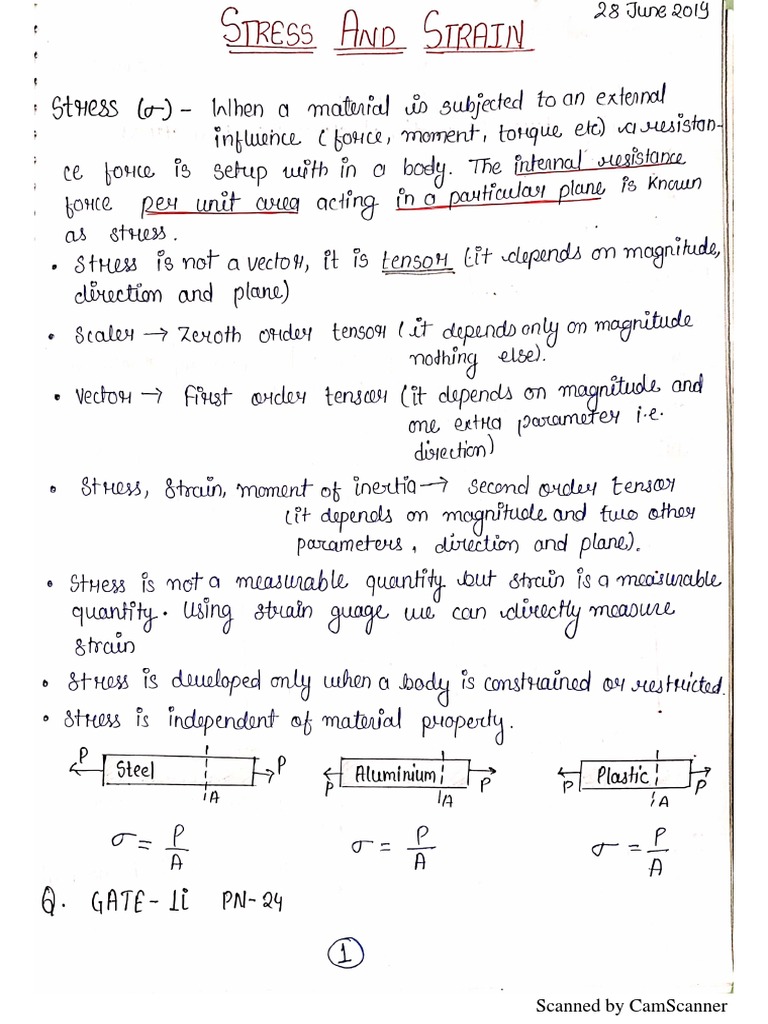 28 June 2019
STRESS AND STRAIN
Stress (σ) - When a material is subjected to an external
influence (force, moment, torque etc) a resistan-
ce force is setup with in a body. The internal resistance
force per unit area acting in a particular plane is known
as stress.
• Stress is not a vector, it is tensor (it depends on magnitude,
direction and plane)
• Scaler → Zeroth order tensor (it depends only on magnitude
nothing else).
• Vector → First order tensor (it depends on magnitude and
one extra parameter i.e.
direction)
• Stress, Strain, moment of inertia → second order tensor
(it depends on magnitude and two other
parameters, direction and plane).
• Stress is not a measurable quantity but strain is a measurable
quantity. Using strain guage we can directly measure
strain
• Stress is developed only when a body is constrained or restricted.
• Stress is independent of material property.
P Steel P A P Aluminium P A P Plastic P A
σ = P/A σ = P/A σ = P/A
Q. GATE - 1i PN-24
1
Scanned by CamScanner